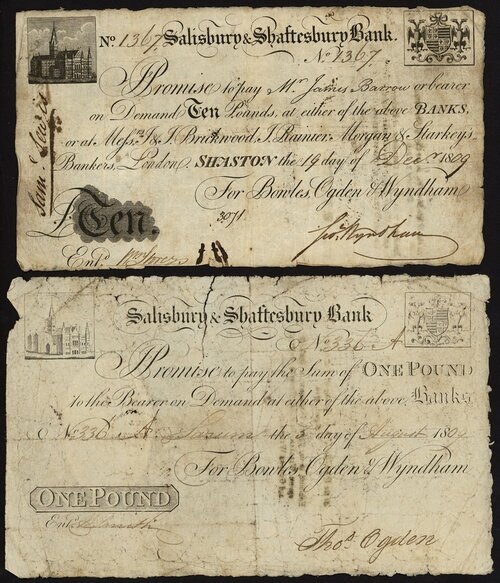 No. 1367 Salisbury & Shaftesbury Bank.
No. 1367.
I Promise to pay Mr. James Barrow or bearer
on Demand Ten Pounds, at either of the above BANKS,
or at Messrs. J & J. Brickwood, J. Rainier, Morgan & Starkey's
Bankers, London. SHASTON the 19 day of Decr. 1809
For Bowles, Ogden & Wyndham
3071
£ Ten.
Entd.
Salisbury & Shaftesbury Bank
No. 336 A
I Promise to pay the Sum of ONE POUND
to the Bearer on Demand at either of the above Banks
No. 336 A the 3 day of August 1809
For Bowles, Ogden & Wyndham
ONE POUND
Entd.
Thos. Ogden